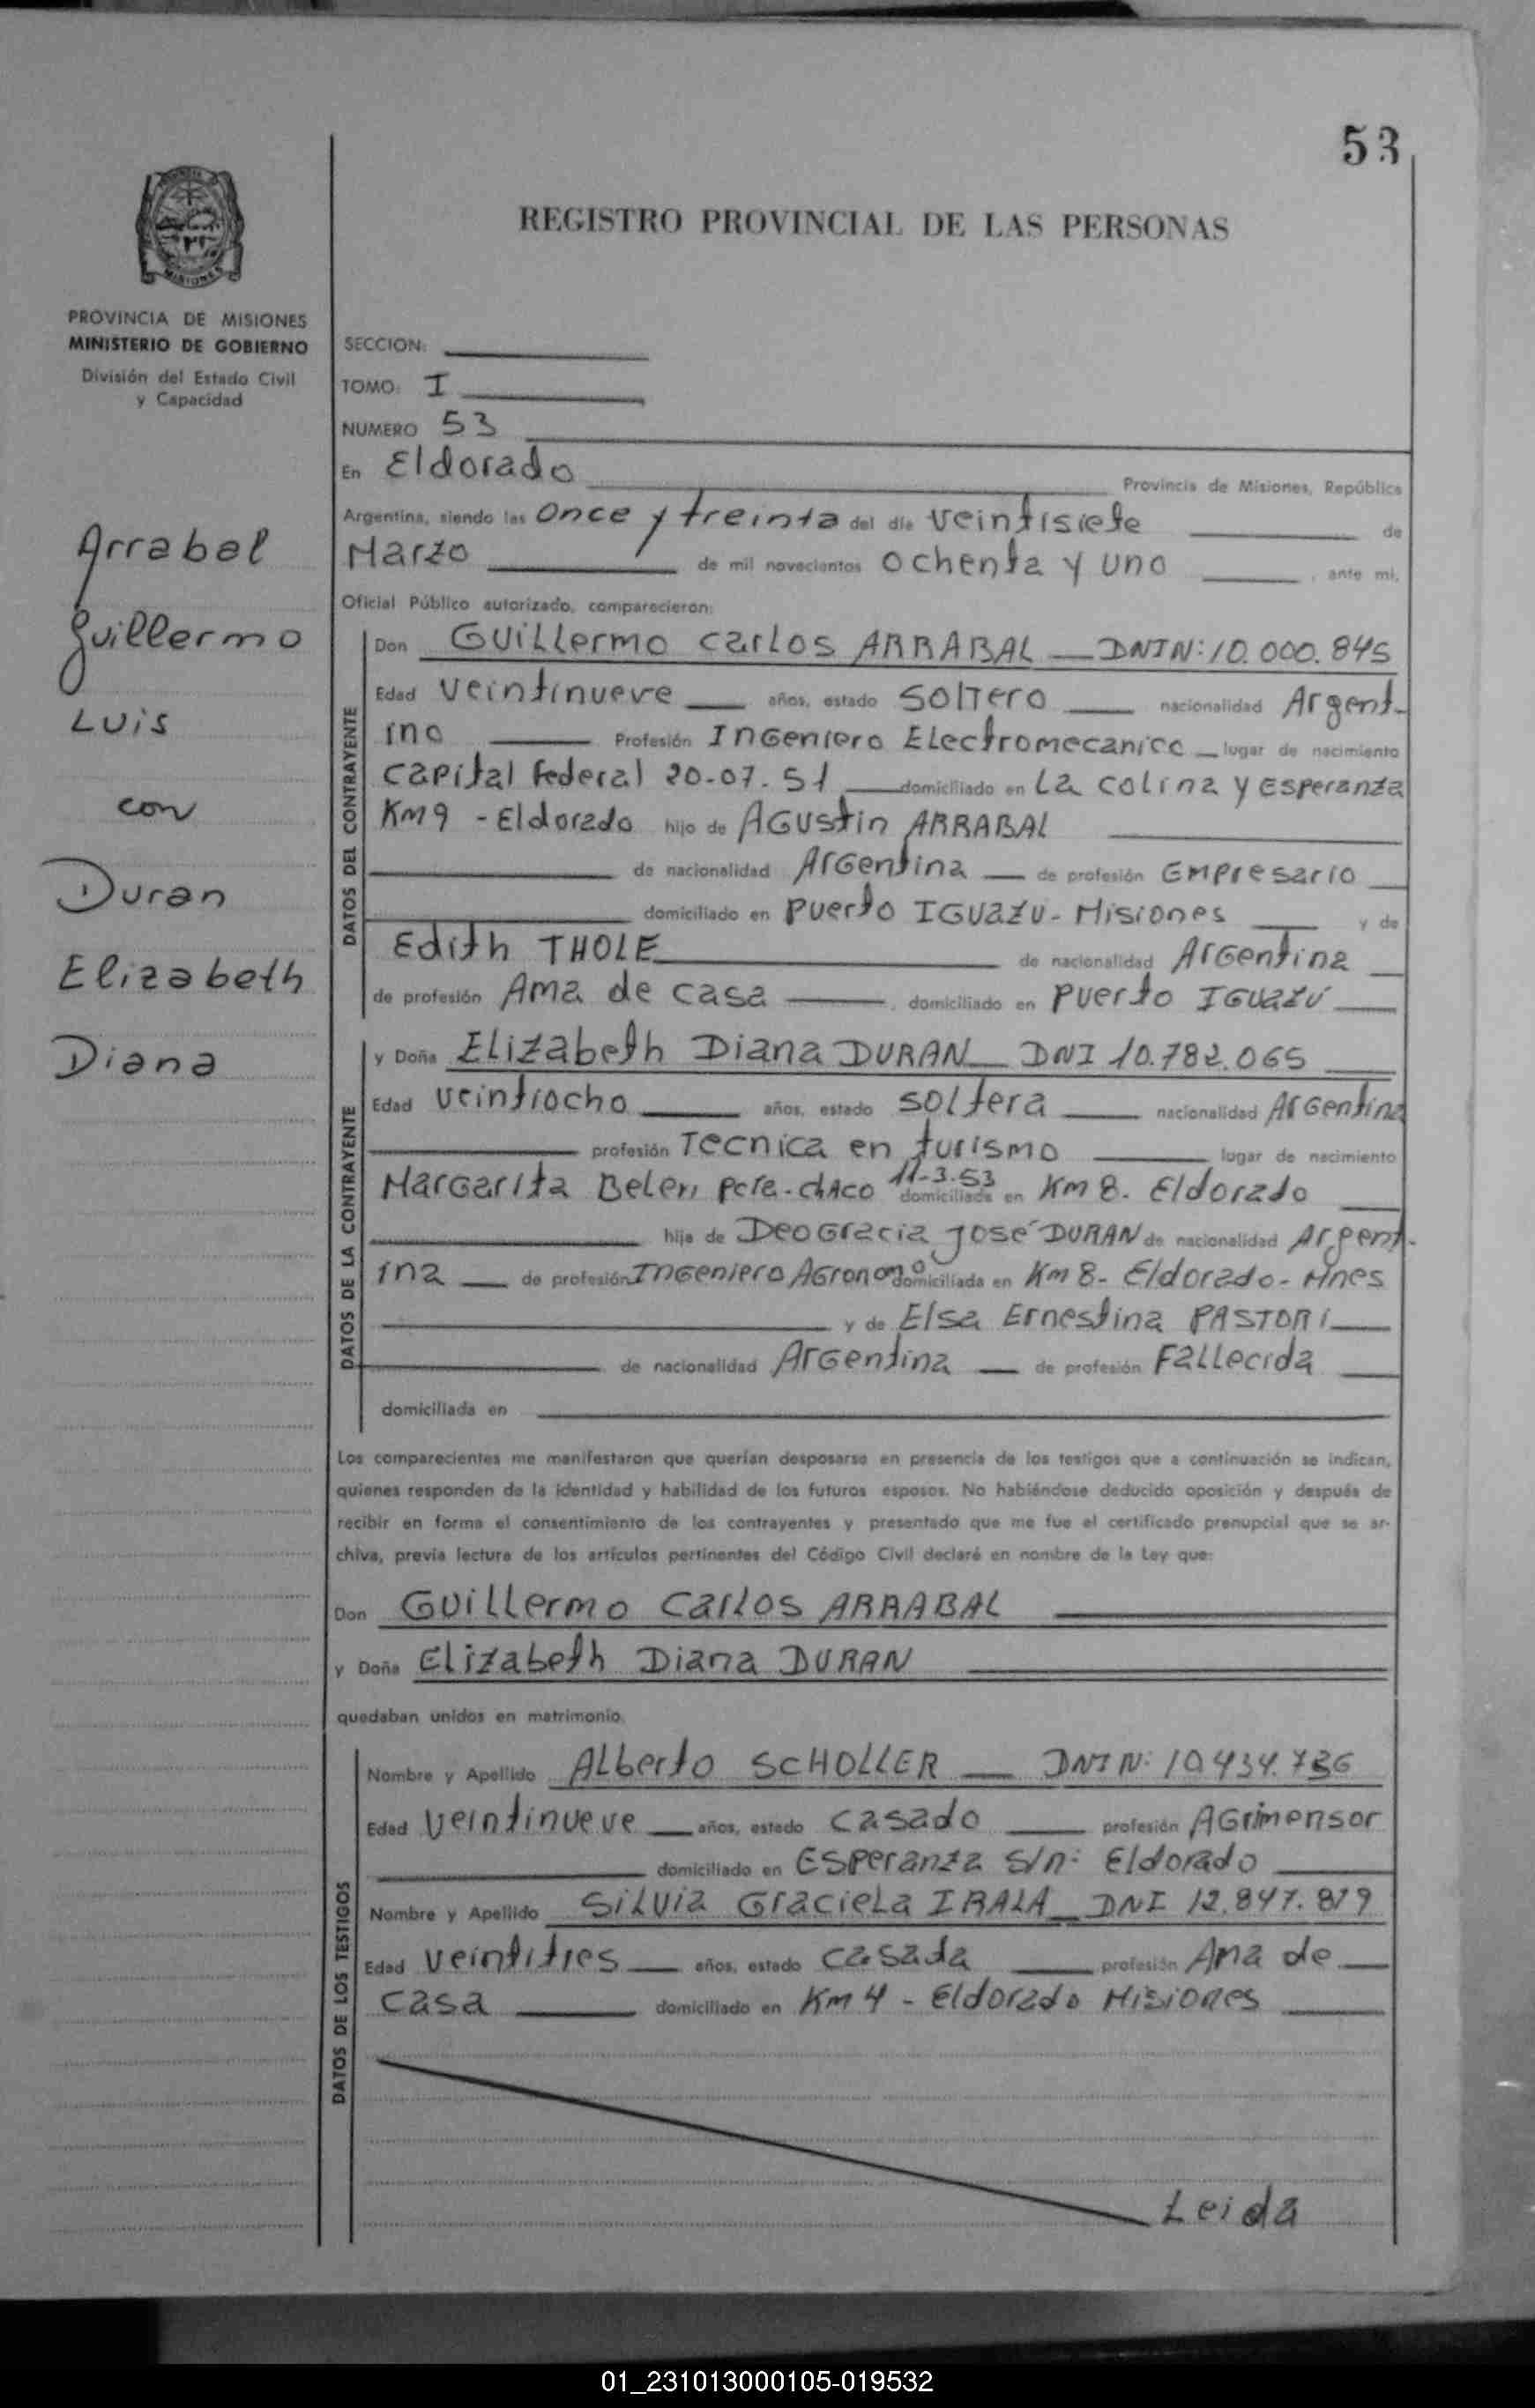 53
REGISTRO PROVINCIAL DE LAS PERSONAS
MISIONES
PROVINCIA DE MISIONES
MINISTERIO DE GOBIERNO
División del Estado Civil
y Capacidad
Arrabal
Guillermo
Luis
con
Duran
Elizabeth
Diana
SECCION:
TOMO: I
NUMERO 53
En Eldorado Provincia de Misiones, República
Argentina, siendo las Once y treinta del día veintisiete de
Marzo de mil novecientos ochenta y uno, ante mi,
Oficial Público autorizado, comparecieron:
DATOS DEL CONTRAYENTE
Don Guillermo Carlos ARRABAL DNIN: 10.000.845
Edad veintinueve años, estado soltero nacionalidad Argent-
ino Profesión Ingeniero Electromecanico lugar de nacimiento
Capital Federal 20-07-51 domiciliado en La Colina y Esperanza
Km 9 - Eldorado hijo de Agustin ARRABAL
de nacionalidad Argentina de profesión Empresario
domiciliado en Puerto Iguazu - Misiones y de
Edith THOLE de nacionalidad Argentina
de profesión Ama de casa, domiciliado en Puerto Iguazú
DATOS DE LA CONTRAYENTE
y Doña Elizabeth Diana DURAN DNI 10.782.065
Edad veintiocho años, estado soltera nacionalidad Argentina
profesión Tecnica en turismo lugar de nacimiento
Margarita Belen Pcia. Chaco 11-3-53 domiciliada en Km 8. Eldorado
hija de Deogracia José DURAN de nacionalidad Argent-
ina de profesión Ingeniero Agronomo domiciliada en Km 8- Eldorado- Mnes
y de Elsa Ernestina PASTORI
de nacionalidad Argentina de profesión Fallecida
domiciliada en
Los comparecientes me manifestaron que querían desposarse en presencia de los testigos que a continuación se indican,
quienes responden de la identidad y habilidad de los futuros esposos. No habiéndose deducido oposición y después de
recibir en forma el consentimiento de los contrayentes y presentado que me fue el certificado prenupcial que se ar-
chiva, previa lectura de los artículos pertinentes del Código Civil declaré en nombre de la Ley que:
Don Guillermo Carlos ARRABAL
y Doña Elizabeth Diana DURAN
quedaban unidos en matrimonio.
DATOS DE LOS TESTIGOS
Nombre y Apellido Alberto SCHOLLER DNI N: 10.434.736
Edad veintinueve años, estado casado profesión Agrimensor
domiciliado en Esperanza s/n: Eldorado
Nombre y Apellido Silvia Graciela IRALA DNI 12.847.819
Edad veintitres años, estado casada profesión Ama de
casa domiciliado en Km 4 - Eldorado Misiones
Leida
01_231013000105-019532